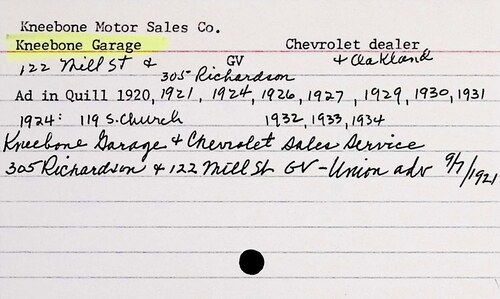 Kneebone Motor Sales Co.
Kneebone Garage Chevrolet dealer
122 Mill St & GV & Oakland
305 Richardson
Ad in Quill 1920, 1921, 1924, 1926, 1927, 1929, 1930, 1931
1924: 119 S. Church 1932, 1933, 1934
Kneebone Garage & Chevrolet Sales Service
305 Richardson & 122 Mill St GV - Union adv 9/7/1921